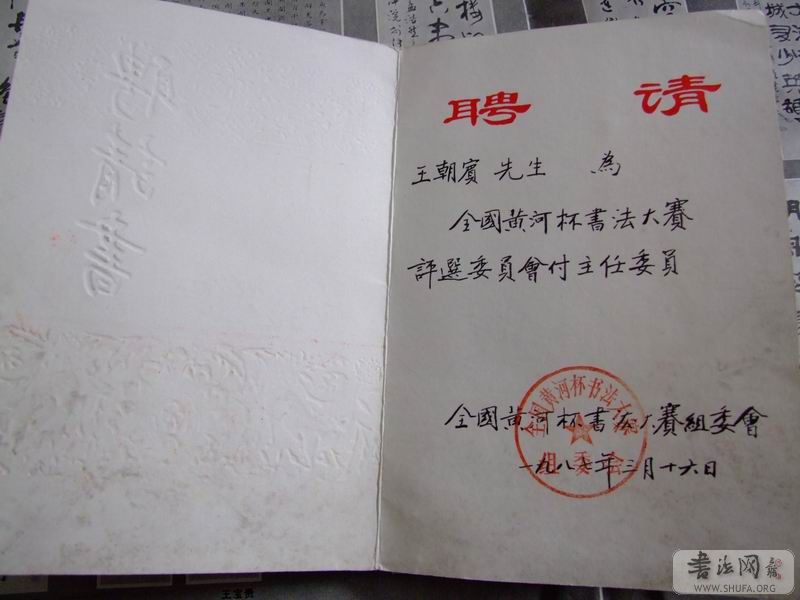 聘请书
聘请
王朝賓 先生 為
全國黄河杯书法大賽
評選委員會付主任委員
全國黄河杯书法大賽組委會
一九八七年三月十六日
全国黄河杯书法大赛
组委会
王宝贵
书法网
WWW.SHUFA.ORG